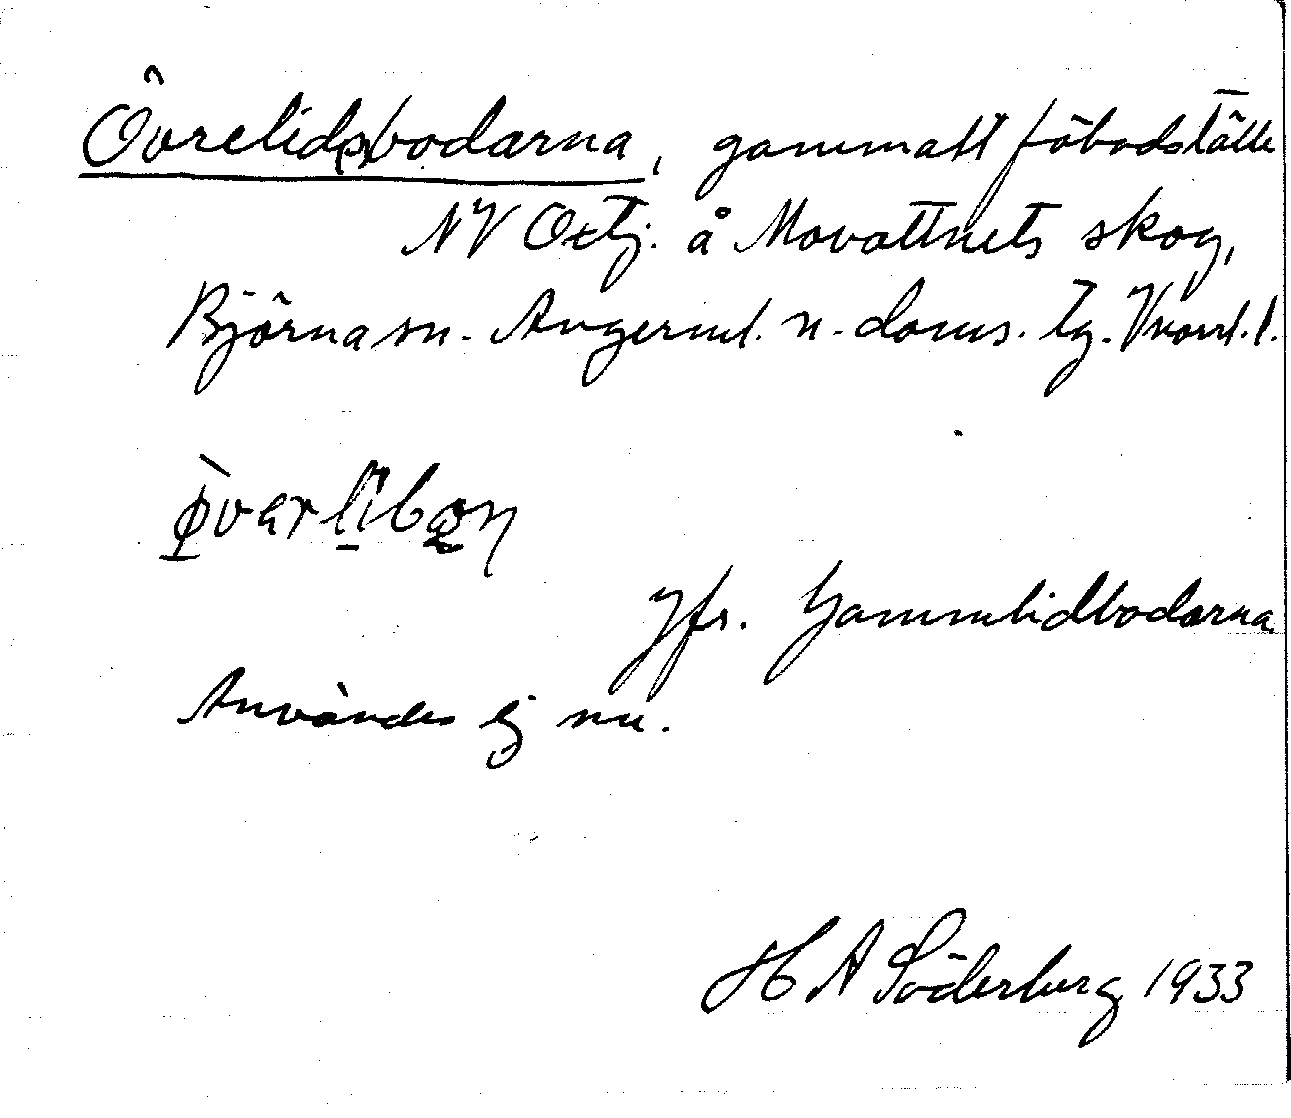 Övrelidsbodarna, gammalt fäbodställe
NV Octj. å Movattnets skog,
Björna sn. Ångerml. n. doms. tg. Vnorrl. l.
Jfr. Gammelidbodarna
Användes ej nu.
H A Söderberg 1933